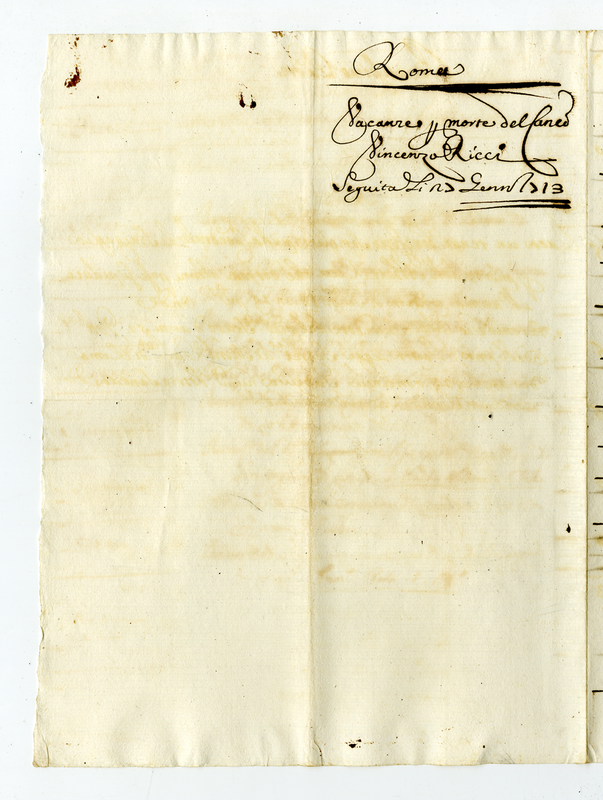 Roma
Vacanze p morte del Canco
Vincenzo Ricci
Seguita li 23 Genn 1713